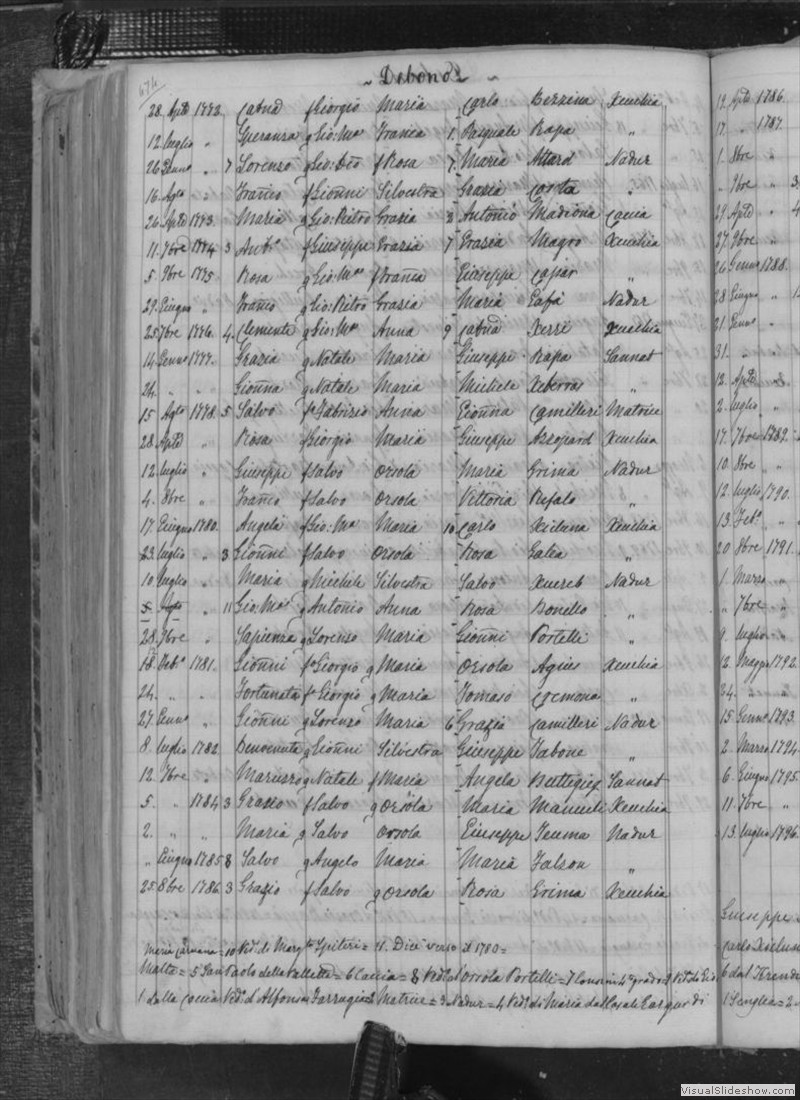 674
Debono
28. Aple 1772. Catnã fGiorgio Maria Carlo Bezzina Xeuchia
12 luglio " Speranza g Gio: Ma Franca 1. Pasquale Rapa "
26 Genn° " 7 Lorenzo g Gio: Bta f Rosa 7. Maria Attard Nadur
16. Agto " Franco f Gionni Silvestra Grazia Costa "
26. Aple 1773. Maria g Gio: Pietro Grazia 8 Antonio Madiona Caccia
11. 7bre 1774 3 Anto f Giuseppe Grazia 7 Grazia Magro Xeuchia
5. 9bre 1775 Rosa g Gio: Ma f Franca Giuseppe Cassar "
29. Giugno " Franco g Gio: Pietro Grazia Maria Safà Nadur
25 7bre 1776. 4. Clemente g Gio: Ma Anna 9 Catnã Xerri Xeuchia
14 Genn° 1777. Grazia g Natale Maria Giuseppe Rapa Sannat
24. " " Gionna g Natale Maria Michele Xeberras "
15 Agto 1778. 5 Salvo f Fabrizio Anna Gionna Camilleri Matrice
28. Aple " Rosa f Giorgio Maria Giuseppe Azzopard Xeuchia
12 luglio " Giuseppe f Salvo Orsola Maria Grima Nadur
4. 8bre " Franco f Salvo Orsola Vittoria Bufalo "
17. Giugno 1780. Angela f Gio: Ma Maria 10 Carlo Xicluna Xeuchia
23. luglio " 3 Gionni f Salvo Orsola Rosa Galea "
10 luglio " Maria g Michele Silvestra Salvo Xuereb Nadur
Agto " 11 Gio: Ma g Antonio Anna Rosa Bonello "
28. 7bre " Sapienza g Lorenzo Maria Gionni Portelli "
18. Feb° 1781. Gionni f Giorgio g Maria Orsola Agius Xeuchia
24. " " Fortunata f Giorgio g Maria Tomaso Cremona "
27. Genn° " Gionni g Lorenzo Maria 6 Grazia Camilleri Nadur
8. luglio 1782. Benvenuta g Gionni Silvestra Giuseppe Tabone "
12. 7bre " Maruzzo g Natale f Maria Angela Buttigieg Sannat
5. " 1784 3 Grazio f Salvo g Orsola Maria Manueli Xeuchia
2. " " Maria g Salvo Orsola Giuseppe Teuma Nadur
" Giugno 1785 8 Salvo g Angelo Maria Maria Falzon "
25. 8bre 1786. 3 Grazio f Salvo g Orsola Rosa Grima Xeuchia
Maria Caruana = 10 Ved. di Margta Spiteri = 11. Dice verso il 1780 =
Malta = 5 San Paolo della Valletta = 6 Caccia = 8 Ved. d'Orsola Portelli = 7 Consini 4° grado = 9 Ved. di Gio
1 dalla Caccia Ved. d'Alfonsa Farrugia = 2 Matrice = 3 Nadur = 4 Ved. di Maria dal Casale Gargur di
12 Aple 1786.
17. " 1787.
1. 8bre "
" 9bre " 3
29. Aple " 4
27. 9bre "
26 Genn° 1788.
28 Giugno "
21. Genn° "
31. " "
12. Aple "
2. luglio "
17. 7bre 1789.
10. 8bre "
12. luglio 1790.
13. Feb° "
20 8bre 1791.
1. Marzo "
" 7bre "
9. luglio "
12. Maggio 1792.
24. " "
15 Genn° 1793.
2. Marzo 1794.
6. Giugno 1795.
11. 7bre "
13. luglio 1796.
Giuseppe
Carlo Xiclun
6 dal
1 Senglea = 2
VisualSlideshow.com